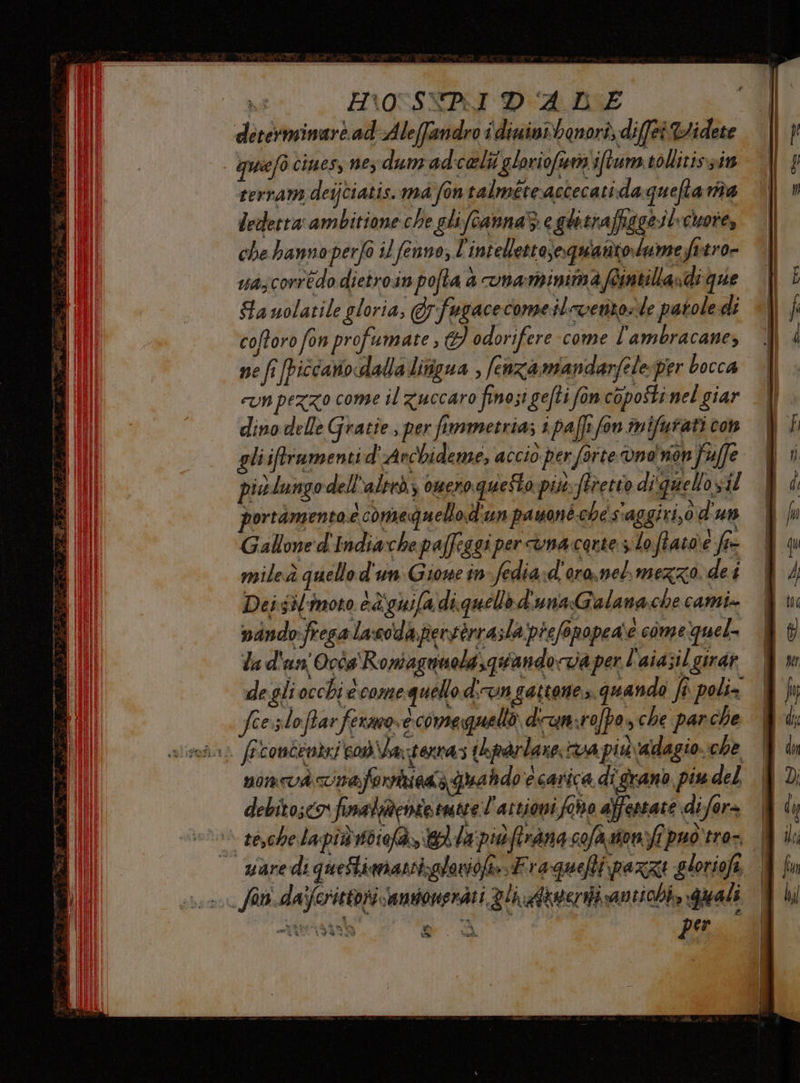 HOSPIDALE
determinare ad Aleſſandro i diuini honori, diſſe: Videte
quæſo ciues, ne, dum ad cœlũ glorioſum iſtum tollitis, in
terram deijciatis. ma ſon talmẽte acceccati da queſta ria
dedetta ambitione che gli ſcanna, e gli traffigge il cuore,
che hanno perſo il ſenno, l'intelletto, e quanto lume ſi tro-
ua, corrẽdo dietro in poſta à vna minima ſcintilla di que
sta uolatile gloria, & fugace come il vento. le parole di
coſtoro ſon profumate, & odorifere come l'ambracane,
ne ſi ſpiccano dalla lingua, ſenza mandarſele per bocca
vn pezzo come il zuccaro fino; i geſti ſon cõposti nel giar
dino delle Gratie, per ſimmetria; i paſſi ſon miſurati con
gli iſtrumenti d'Archideme, acciò per ſorte vno non fuſſe
più lungo dell'altro, ouero questo più ſtretto di quello; il
portamento è come quello d'un pauone che s'aggiri, ò d'un
Gallone d'India che paſſeggi per vna corte; lo ſtato è ſi-
mile à quello d'un Gioue in ſedia d'oro nel mezzo de i
Dei; il moto è à guiſa di quello d'una Galana che cami-
nando frega la coda per terra; la proſopopea è come quel-
la d'un' Occa Romagnuola, quando và per l'aia; il girar
de gli occhi è come quello d'vn gattone, quando ſi poli-
ſce; lo ſtar fermo, è come quello d'vn roſpo, che par che
ſi concentri con la terra; il parlare, và più adagio, che
non và vna formica, quando è carica di grano più del
debito; & finalmente tutte l'attioni ſono affettate di ſor-
te, che la più noioſa, & la più ſtrana coſa non ſi può tro-
uare di questi matti glorioſi. Fra queſti pazzi glorioſi,
ſon da ſcrittori annouerati gli antichi, quali
per